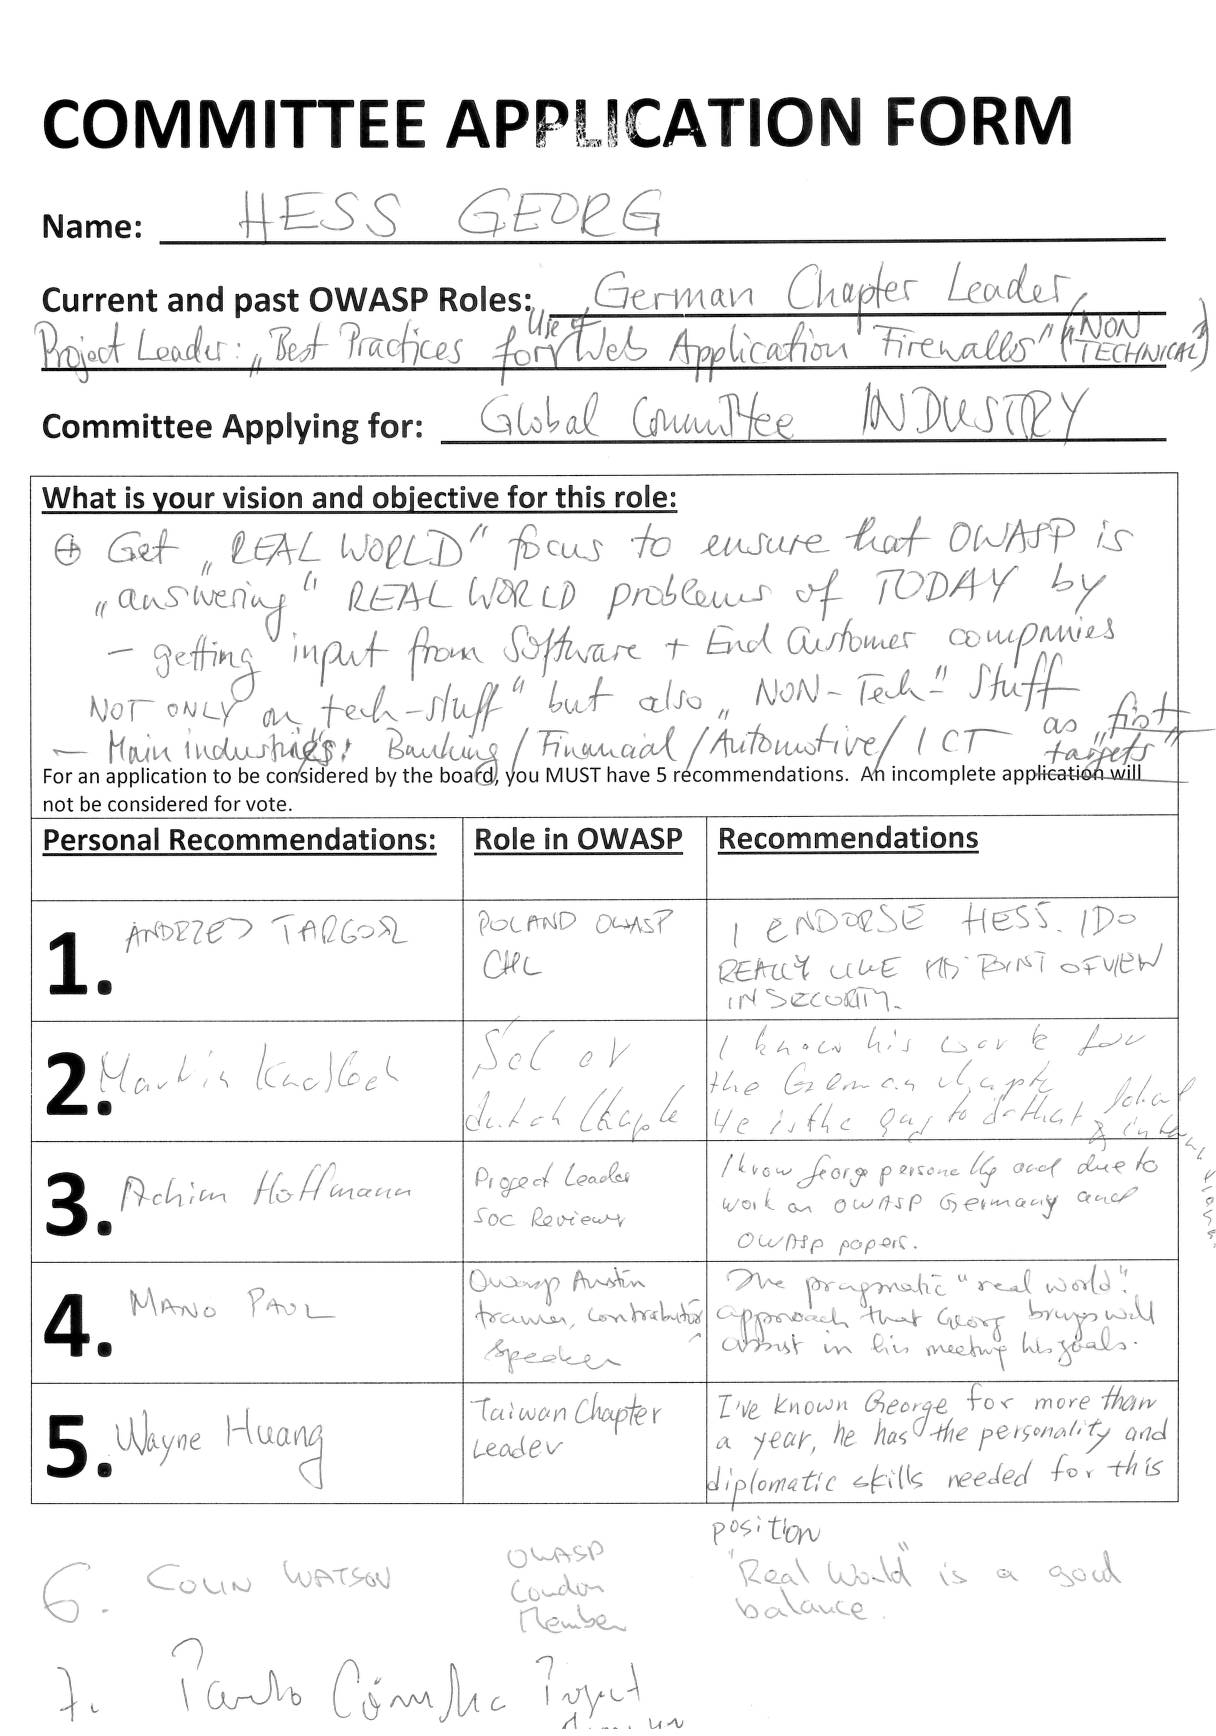 COMMITTEE APPLICATION FORM
Name: HESS GEORG
Current and past OWASP Roles: German Chapter Leader,
Project Leader: „Best Practices for Use of Web Application Firewalls" (NON TECHNICAL)
Committee Applying for: Global Committee INDUSTRY
What is your vision and objective for this role:
⊕ Get „REAL WORLD" focus to ensure that OWASP is
„answering" REAL WORLD problems of TODAY by
- getting input from Software + End Customer companies
NOT ONLY on „tech-stuff" but also „NON-Tech-" Stuff
- Main industries: Banking / Financial / Automotive / ICT as „first" targets
For an application to be considered by the board, you MUST have 5 recommendations. An incomplete application will
not be considered for vote.
Personal Recommendations: Role in OWASP Recommendations
1. POLAND OWASP I ENDORSE HESS. I DO
REALLY LIKE HIS POINT OF VIEW
IN SECURITY.
2. Martin Knobloch I know his work for
dutch Chapter the German chapter
He is the guy to do that
3. Achim Hoffmann Project Leader I know George personally and due to
SOC Reviewer work on OWASP Germany and
OWASP papers.
4. MANO PAUL Owasp Austin The pragmatic "real world"
trainer, contributor, approach that Georg brings will
Speaker assist in his meeting his goals.
5. Wayne Huang Taiwan Chapter I've known George for more than
Leader a year, he has the personality and
diplomatic skills needed for this
position
6. COLIN WATSON OWASP "Real World" is a good
London balance.
Member
7. Project